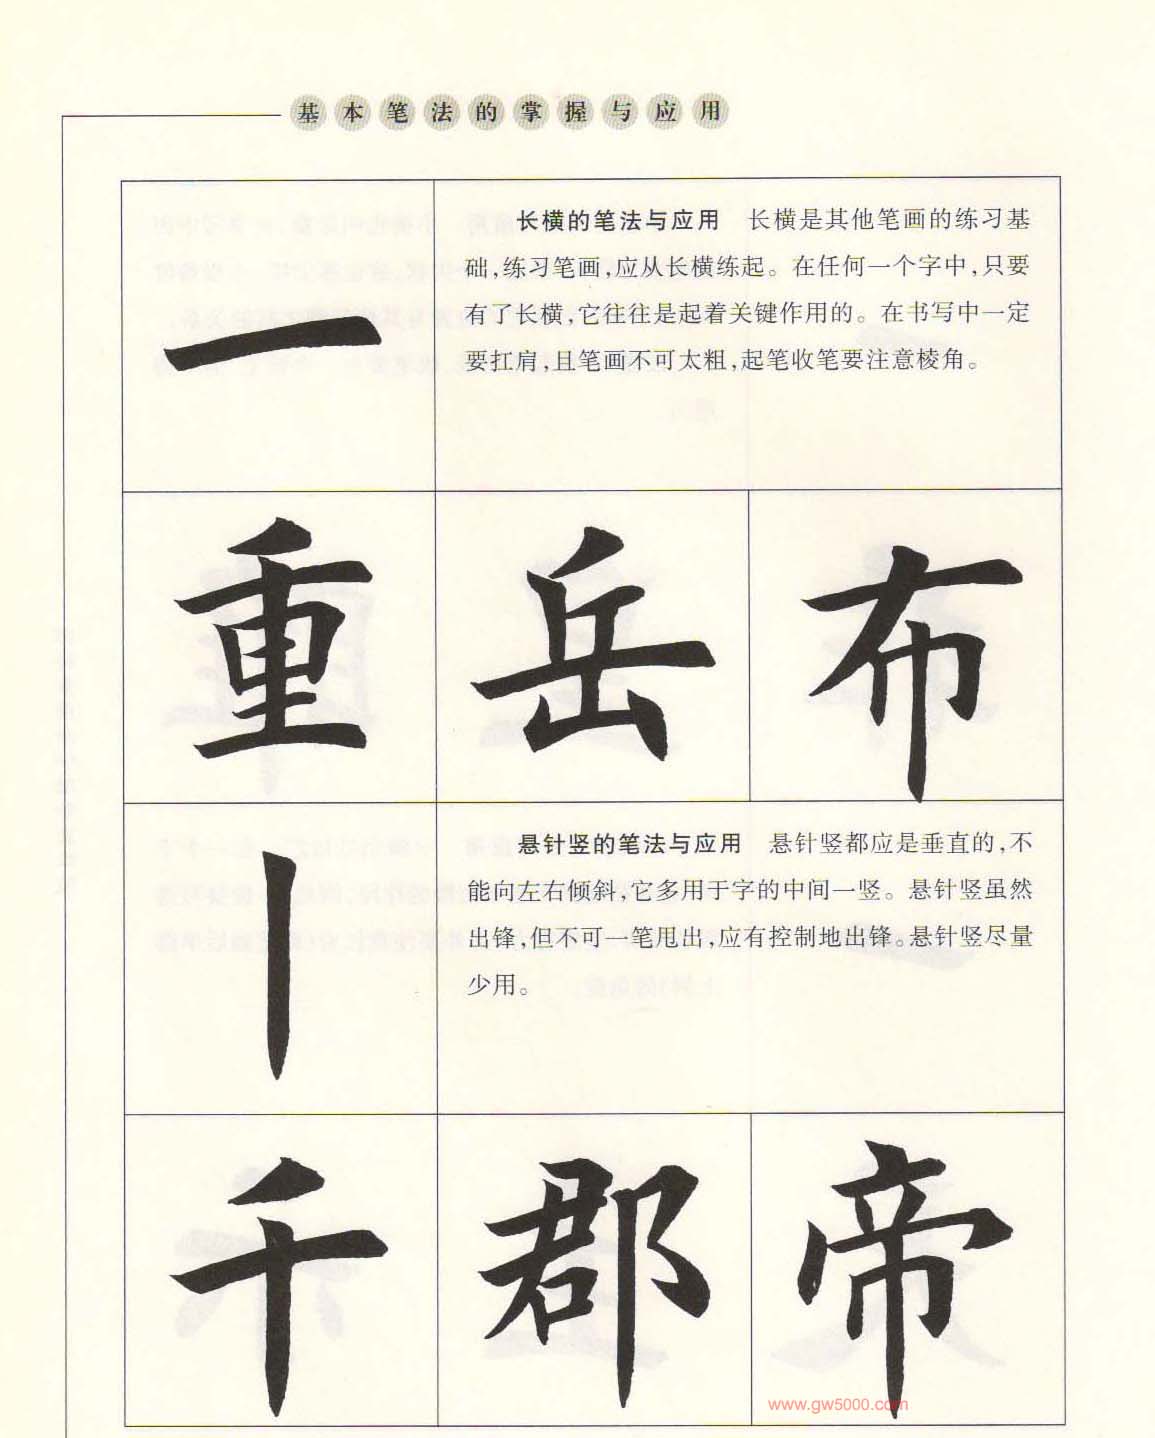 基本笔法的掌握与应用
一
长横的笔法与应用 长横是其他笔画的练习基
础,练习笔画,应从长横练起。在任何一个字中,只要
有了长横,它往往是起着关键作用的。在书写中一定
要扛肩,且笔画不可太粗,起笔收笔要注意棱角。
重 岳 布
丨
悬针竖的笔法与应用 悬针竖都应是垂直的,不
能向左右倾斜,它多用于字的中间一竖。悬针竖虽然
出锋,但不可一笔甩出,应有控制地出锋。悬针竖尽量
少用。
千 郡 帝
www.gw5000.com